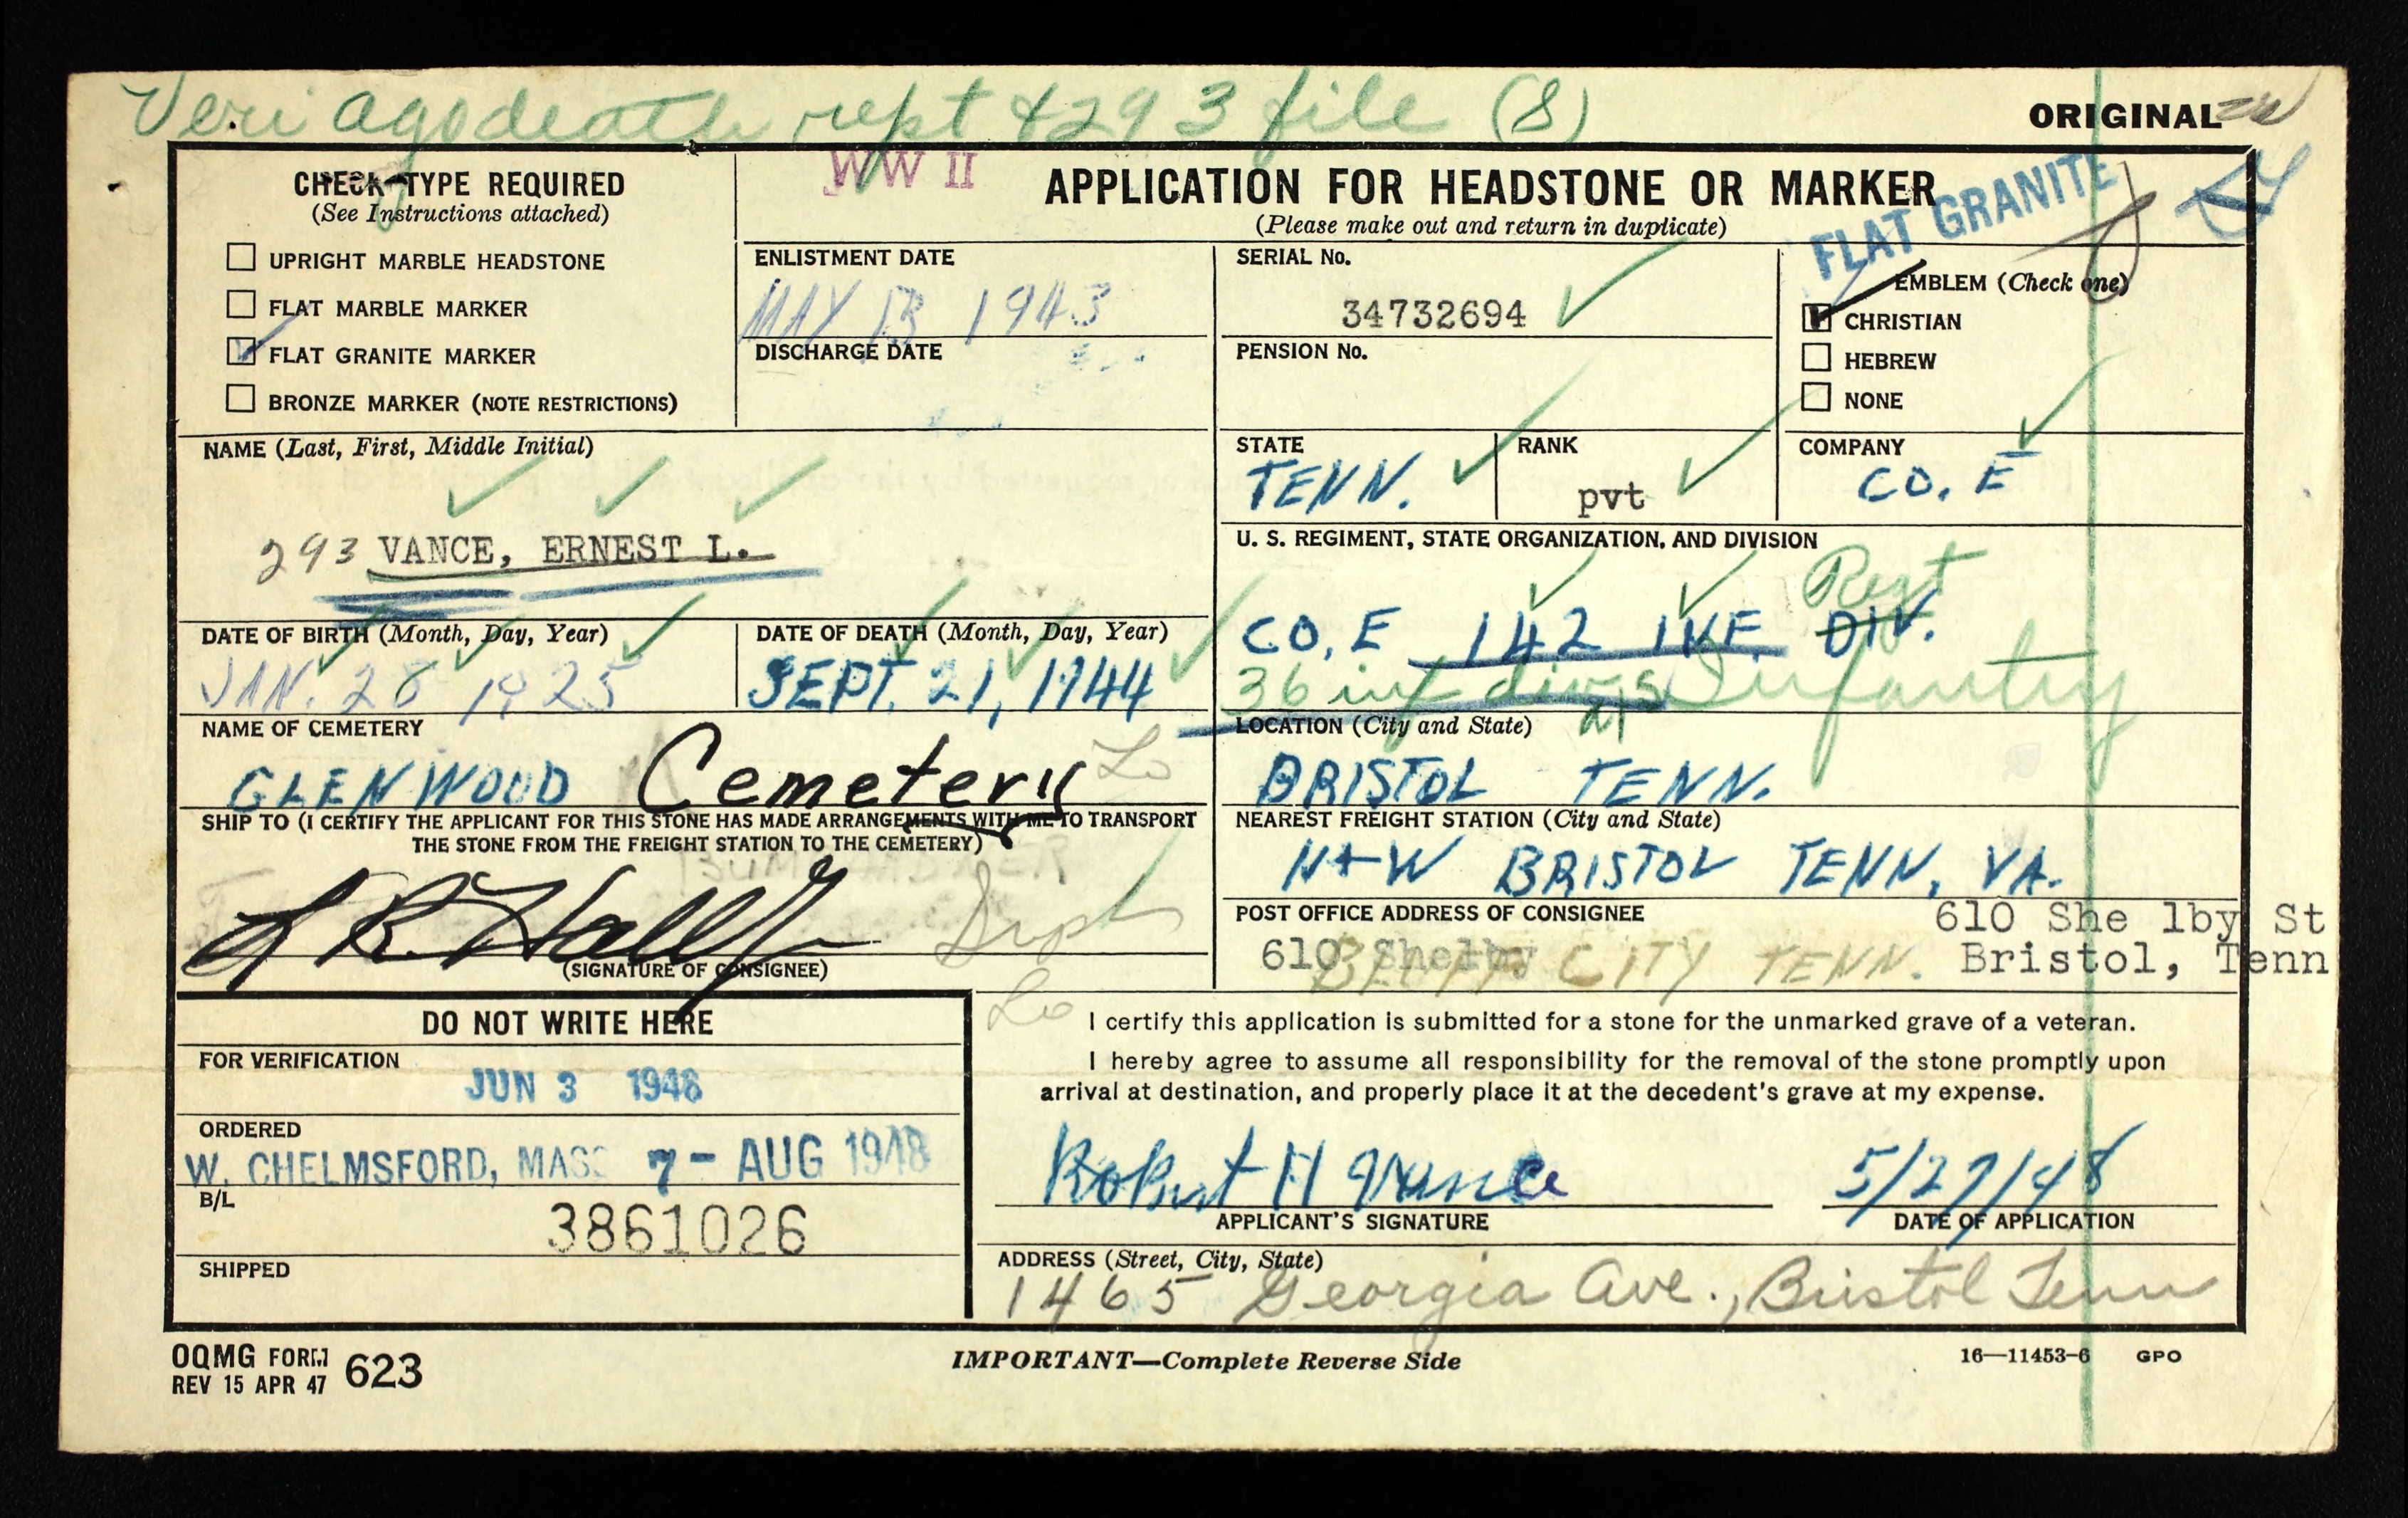 Veri ago death rept 4293 file (8)
ORIGINAL
WW II
CHECK TYPE REQUIRED
(See Instructions attached)
UPRIGHT MARBLE HEADSTONE
FLAT MARBLE MARKER
FLAT GRANITE MARKER
BRONZE MARKER (NOTE RESTRICTIONS)
APPLICATION FOR HEADSTONE OR MARKER
(Please make out and return in duplicate)
FLAT GRANITE
ENLISTMENT DATE
MAY 13 1943
DISCHARGE DATE
SERIAL No.
34732694
PENSION No.
EMBLEM (Check one)
CHRISTIAN
HEBREW
NONE
NAME (Last, First, Middle Initial)
293 VANCE, ERNEST L.
STATE
TENN.
RANK
pvt
COMPANY
CO. E
U. S. REGIMENT, STATE ORGANIZATION, AND DIVISION
Regt
CO. E 142 INF. DIV.
36 inf div Infantry
DATE OF BIRTH (Month, Day, Year)
JAN. 28 1925
DATE OF DEATH (Month, Day, Year)
SEPT. 21, 1944
NAME OF CEMETERY
GLENWOOD Cemetery
LOCATION (City and State)
BRISTOL TENN.
SHIP TO (I CERTIFY THE APPLICANT FOR THIS STONE HAS MADE ARRANGEMENTS WITH ME TO TRANSPORT
THE STONE FROM THE FREIGHT STATION TO THE CEMETERY)
(SIGNATURE OF CONSIGNEE)
NEAREST FREIGHT STATION (City and State)
N+W BRISTOL TENN, VA.
POST OFFICE ADDRESS OF CONSIGNEE
610 She lby St
610 Shelby BLUFF CITY TENN. Bristol, Tenn
DO NOT WRITE HERE
FOR VERIFICATION
JUN 3 1948
ORDERED
W. CHELMSFORD, MASS 7- AUG 1948
B/L
3861026
SHIPPED
I certify this application is submitted for a stone for the unmarked grave of a veteran.
I hereby agree to assume all responsibility for the removal of the stone promptly upon
arrival at destination, and properly place it at the decedent's grave at my expense.
Robert H Vance 5/27/48
APPLICANT'S SIGNATURE
DATE OF APPLICATION
ADDRESS (Street, City, State)
1465 Georgia Ave., Bristol Tenn
OQMG FORM 623
REV 15 APR 47
IMPORTANT—Complete Reverse Side
16—11453-6 GPO